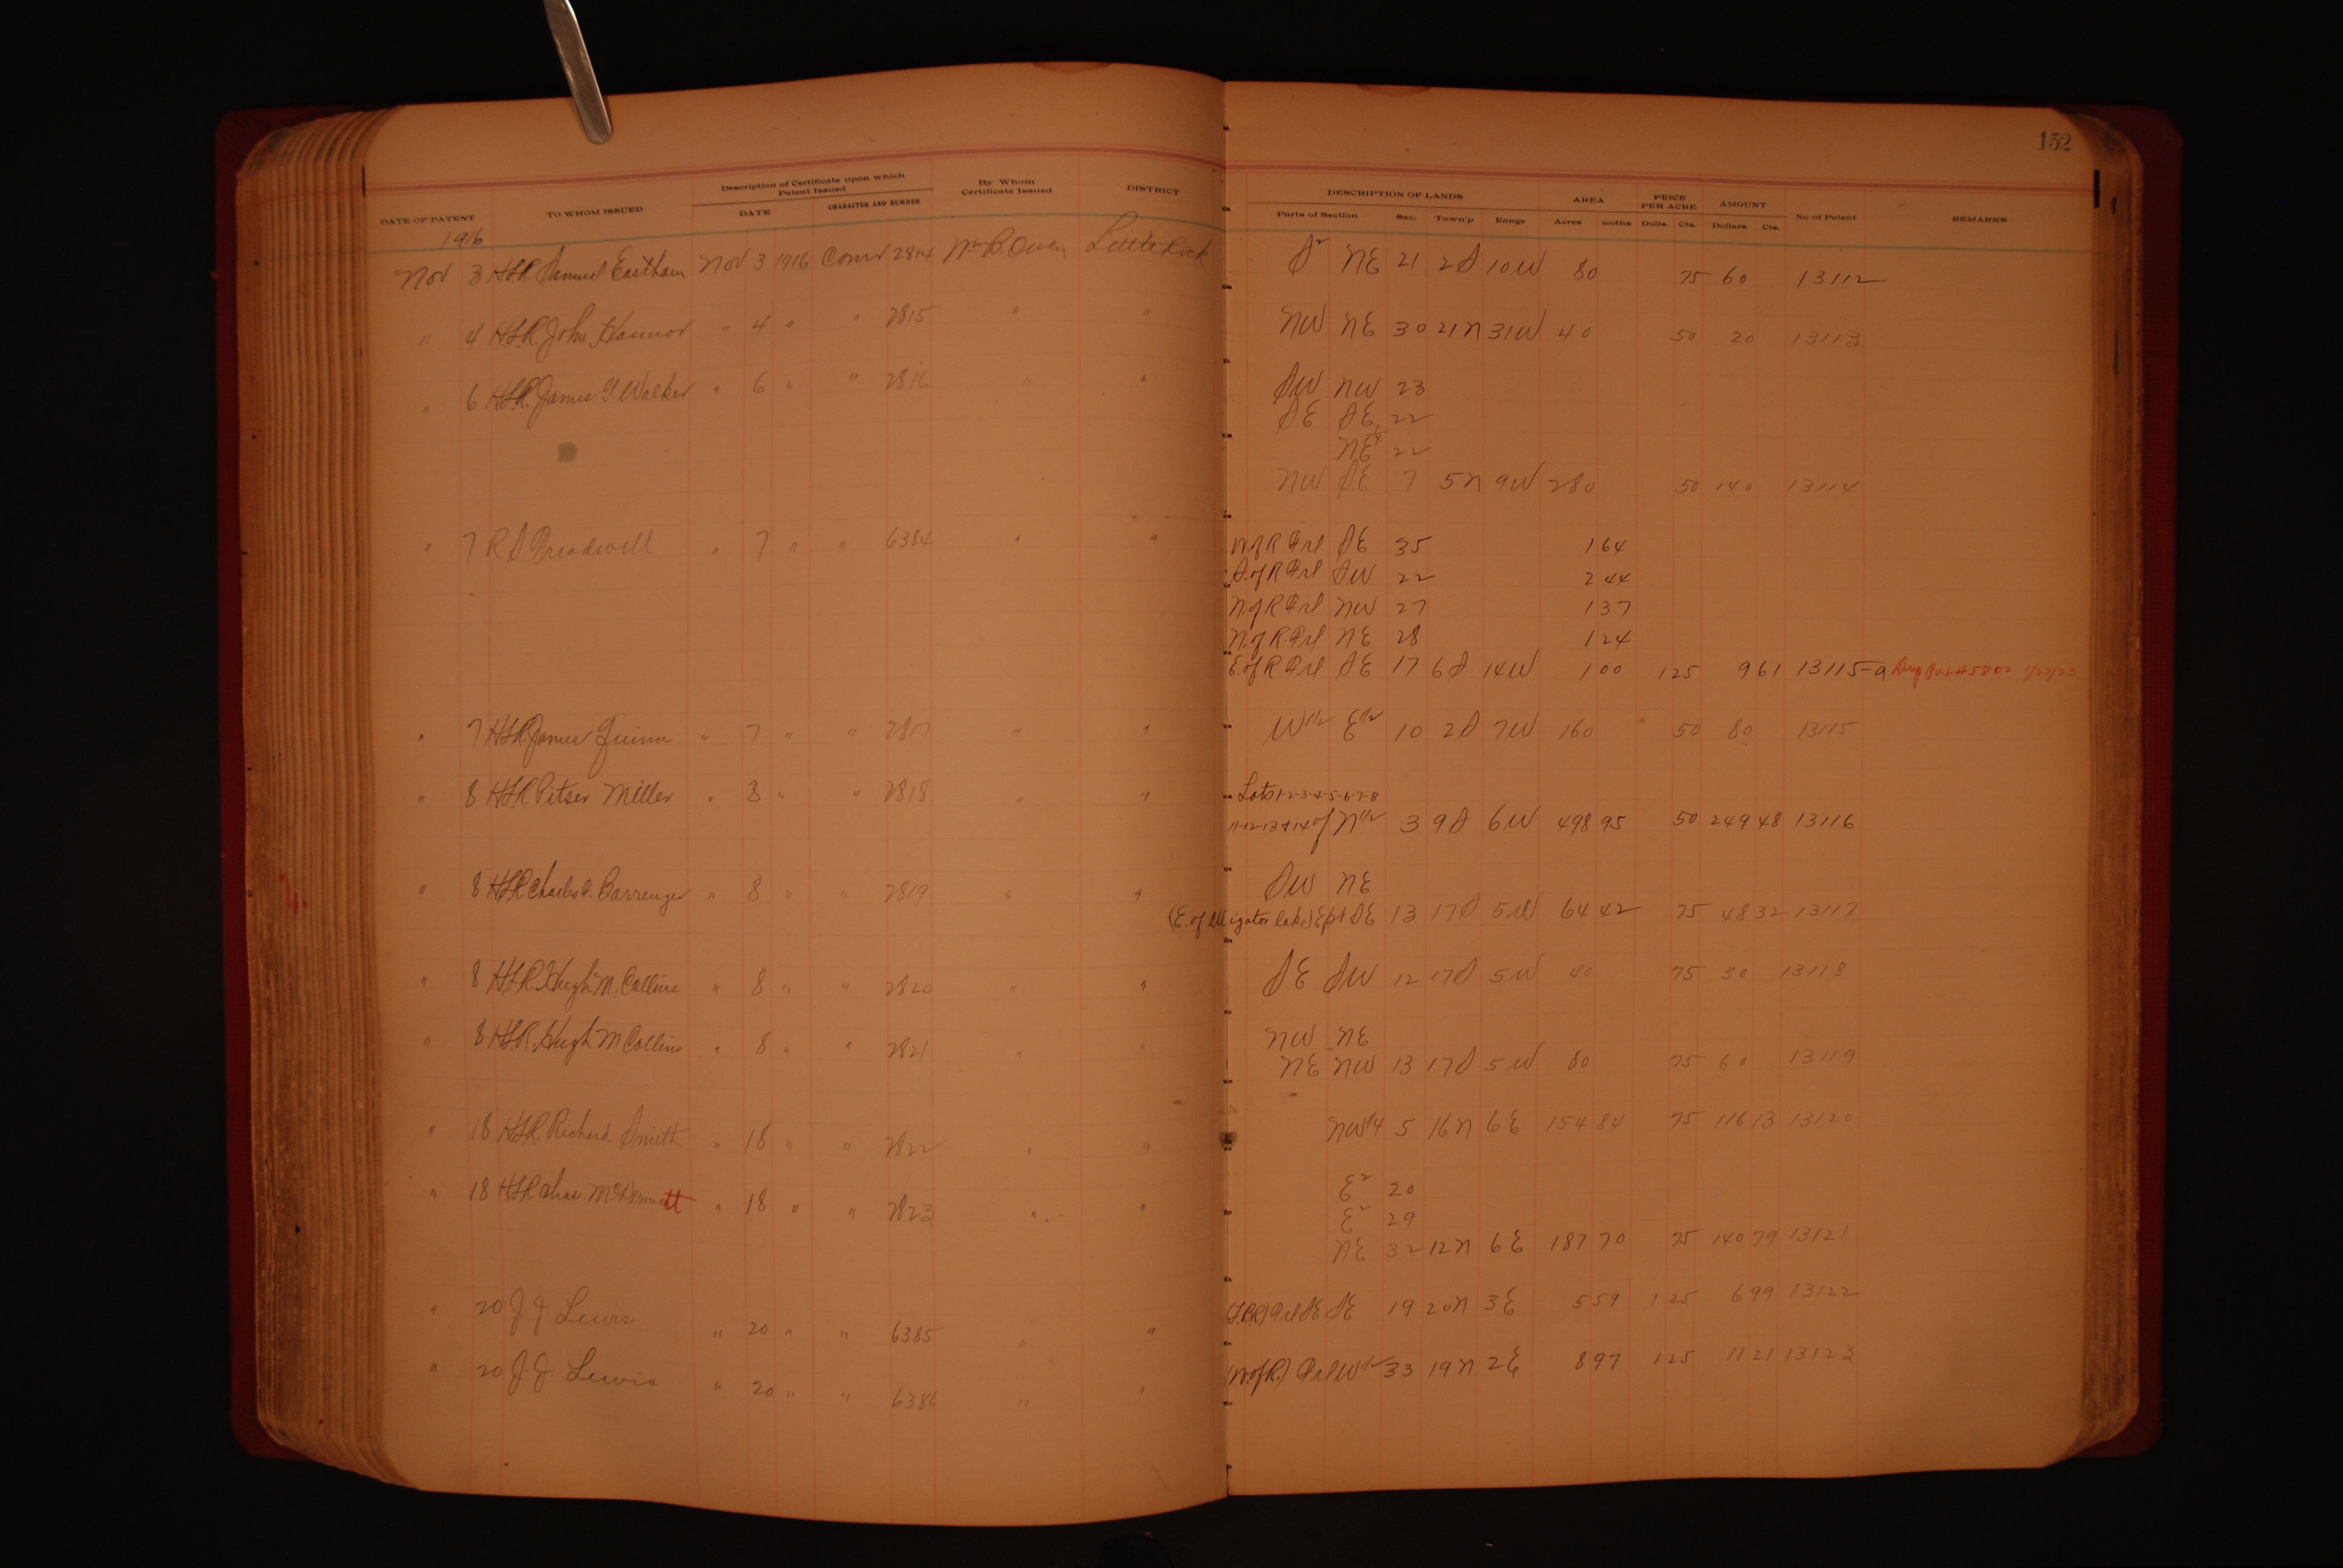 152
Description of Certificate upon which Patent Issued
By Whom Certificate Issued
DISTRICT
DESCRIPTION OF LANDS
AREA
PRICE PER ACRE
AMOUNT
DATE OF PATENT TO WHOM ISSUED DATE CHARACTER AND NUMBER
Parts of Section Sec. Town'p Range Acres 100ths Dolls. Cts. Dollars Cts. No. of Patent REMARKS
1916
Nov 3 H.L.R. Samuel Eastham Nov 3 1916 2814 Wm B. Owen Little Rock S2 NE 21 2S 10W 80 75 60 13112
" 4 H.L.R. John Hannor " 4 " " 2815 " " NW NE 30 21N 31W 40 50 20 13113
" 6 H.L.R. James G Walker " 6 " " 2816 " " SW NW 23
SE SE 22
NE4 22
NW SE 7 5N 9W 280 50 140 13114
" 7 R S " 7 " " 6384 " " N. of R Frl SE 35 1 64
S. of R Frl SW 22 2 44
N. of R Frl NW 27 1 37
N. of R. Frl NE 28 1 24
E. of R Frl SE 17 6S 14W 1 00 1 25 9 61 13115-a 5802 1/22/23
" 7 H.L.R. James Quinn " 7 " " 2817 " " W1/2 E1/2 10 2S 7W 160 50 80 13115
" 8 H.L.R. Pitser Miller " 8 " " 2818 " " Lots 1-2-3-4-5-6-7-8
11-12-13 & 14 of N1/2 3 9S 6W 498 95 50 249 48 13116
" 8 H.L.R. Charles A. Barrenger " 8 " " 2819 " " SW NE
(E. of Alligator lake) E pt SE 13 17S 5W 64 42 75 48 32 13117
" 8 H.L.R. Hugh M. Collins " 8 " " 2820 " " SE SW 12 17S 5W 40 75 30 13118
" 8 H.L.R. Hugh M Collins " 8 " " 2821 " " NW NE
NE NW 13 17S 5W 80 75 60 13119
" 18 H.L.R. Richard Smith " 18 " " 2822 " " NW1/4 5 16N 6E 154 84 75 116 13 13120
" 18 H.L.R. Chas. " 18 " " 2823 " " E2 20
E2 29
NE 32 12N 6E 187 70 75 140 79 13121
" 20 J J Lewis " 20 " " 6385 " " Frl SE SE 19 20N 3E 5 59 1 25 6 99 13122
" 20 J. J. Lewis " 20 " " 6386 " " (W. of R.) Frl W1/2 33 19N 2E 8 97 1 25 11 21 13123